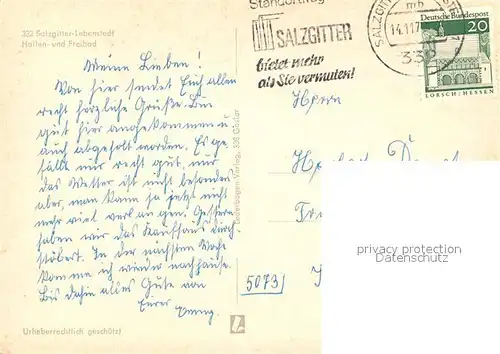 332 Salzgitter-Lebenstedt
Hallen- und Freibad
Meine Lieben!
Von hier sendet Euch allen
recht herzliche Grüße. Bin
gut hier angekommen u
auch abgeholt worden. Es ge-
fällt mir recht gut, nur
das Wetter ist nicht besonders
aber, man kann ja jetzt nicht
mehr viel verlangen. Gestern
haben wir das Kaufhaus durch-
stöbert. In der nächsten Woche
komme ich wieder nachhause.
Bis dahin alles Gute von
Eurer
Urheberrechtlich geschützt
SALZGITTER
bietet mehr
als Sie vermuten!
SALZGITTER
mb
14.11.7
332
Deutsche Bundespost
20
LORSCH/HESSEN
Herrn
5073
privacy protection
Datenschutz